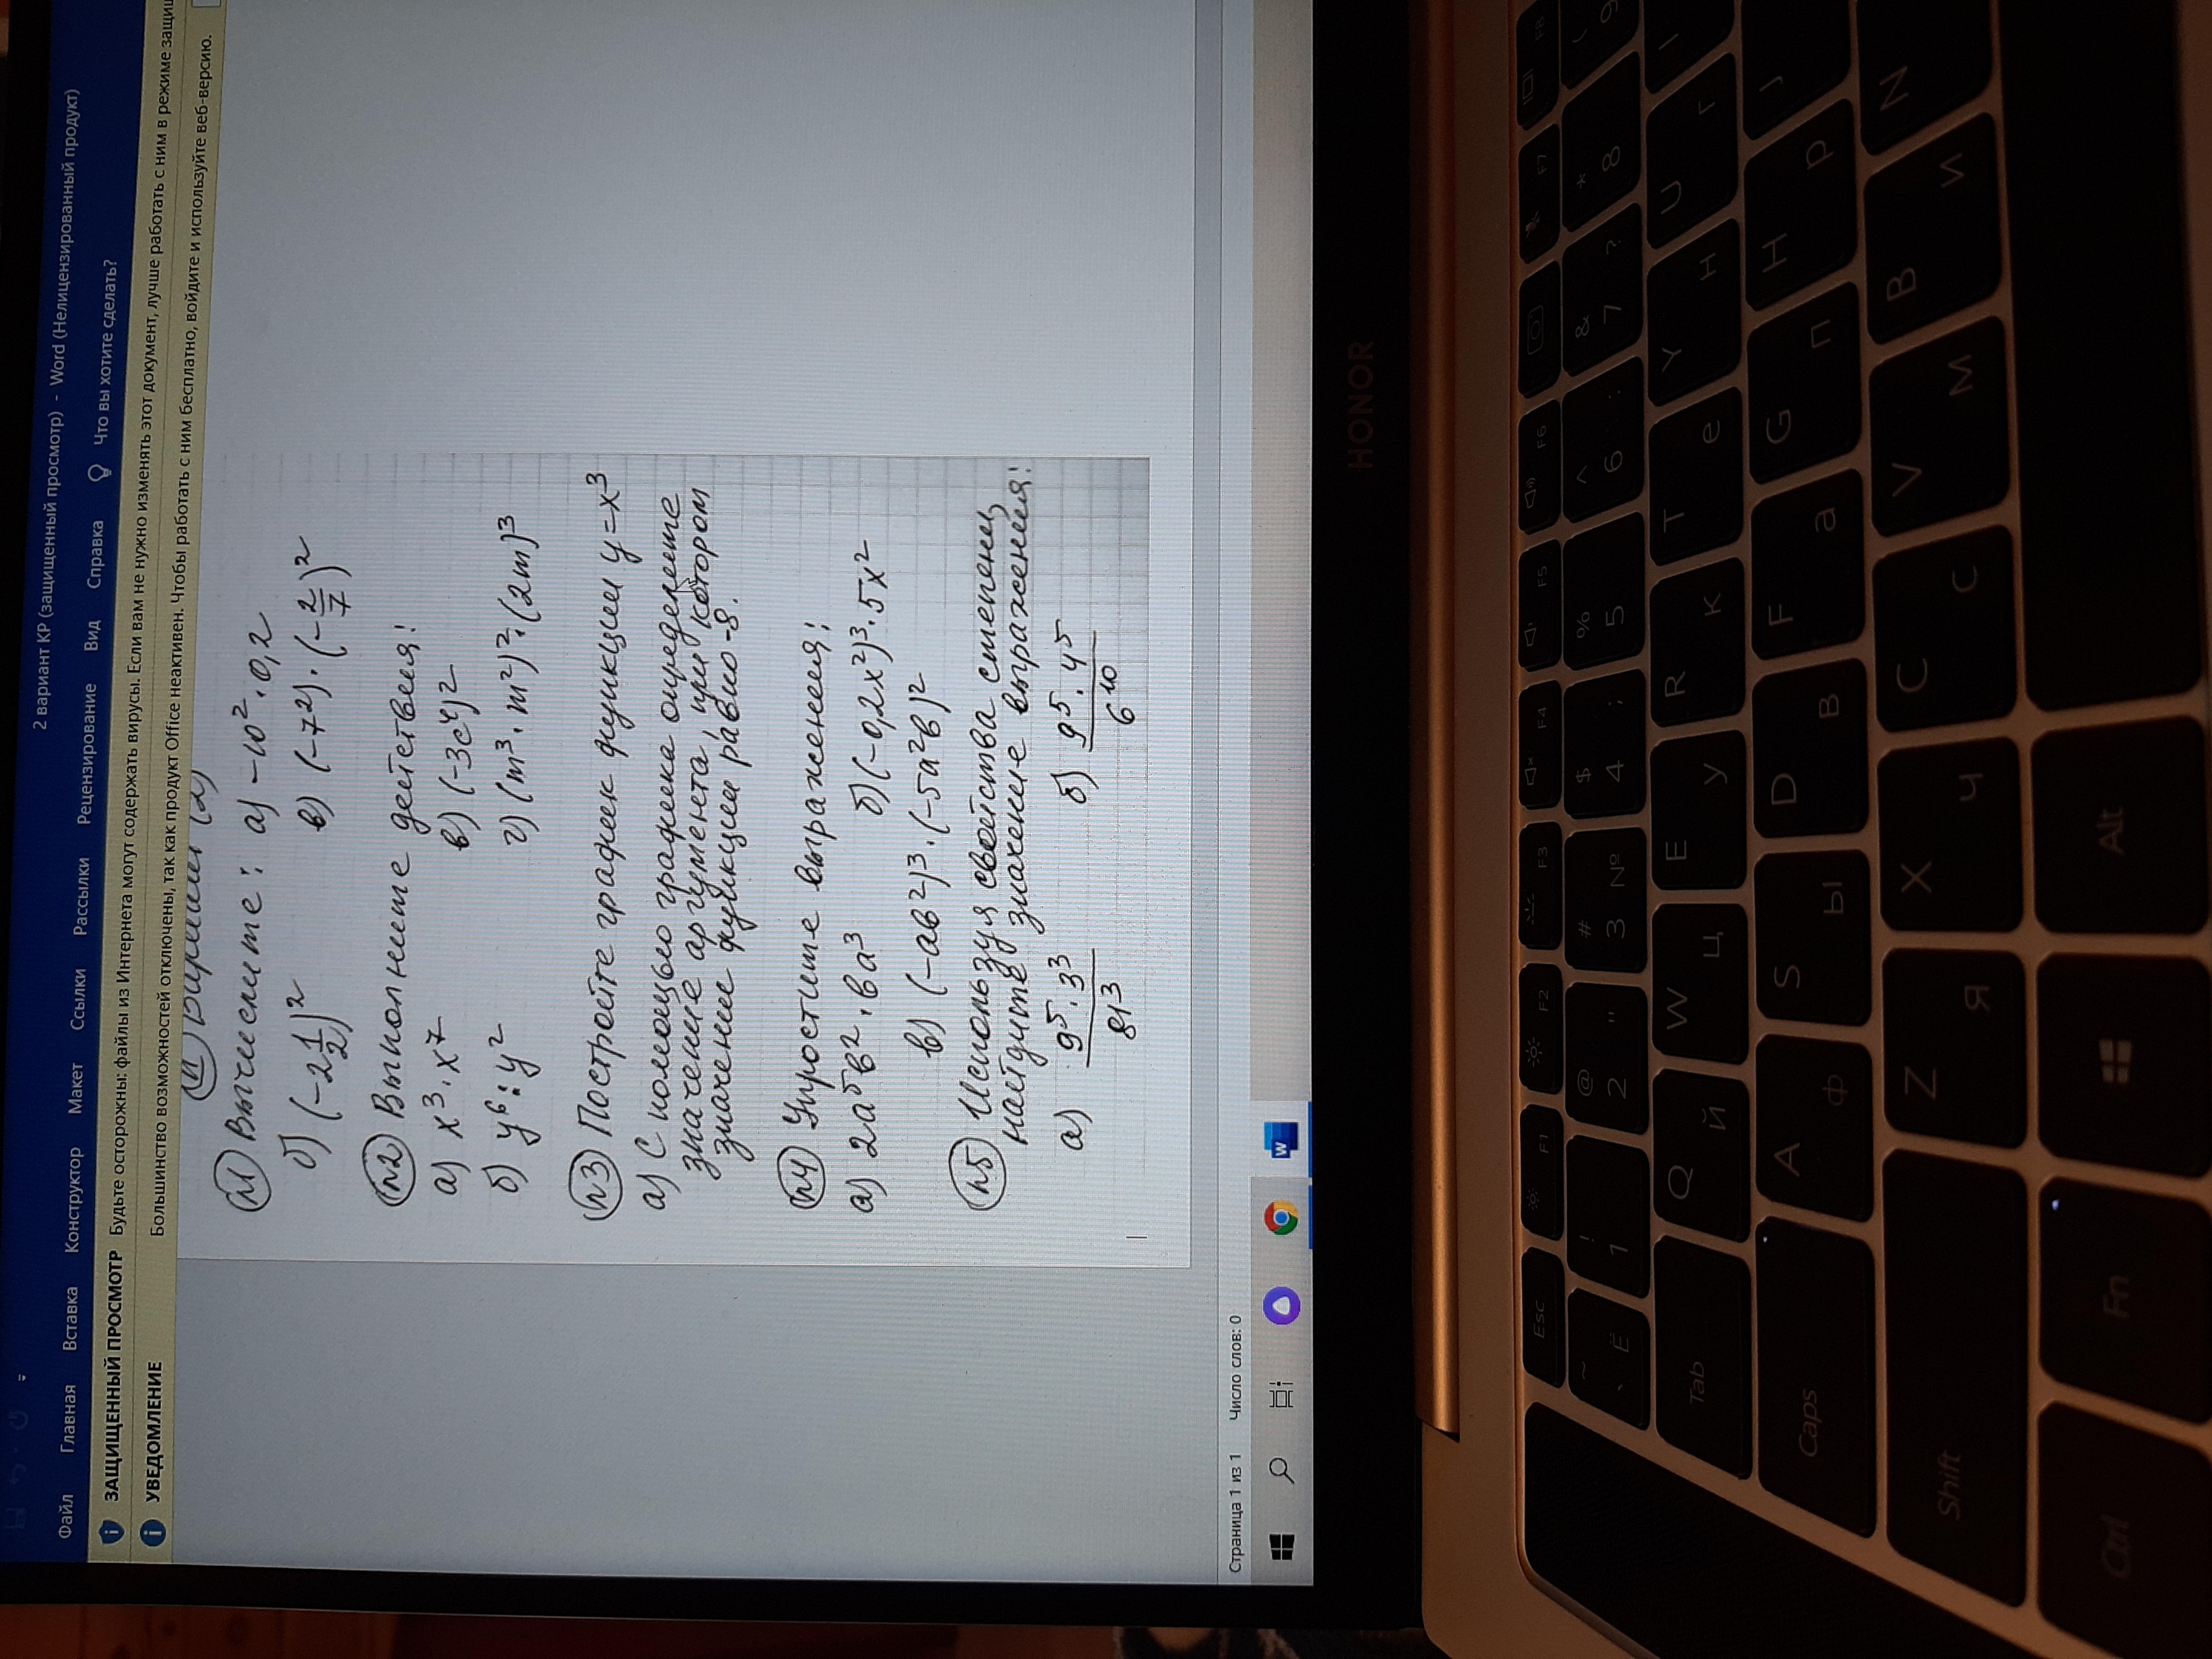 2 вариант КР (защищенный просмотр) - Word (Нелицензированный продукт)
Файл Главная Вставка Конструктор Макет Ссылки Рассылки Рецензирование Вид Справка Что вы хотите сделать?
ЗАЩИЩЕННЫЙ ПРОСМОТР Будьте осторожны: файлы из Интернета могут содержать вирусы. Если вам не нужно изменять этот документ, лучше работать с ним в режиме защи
УВЕДОМЛЕНИЕ Большинство возможностей отключены, так как продукт Office неактивен. Чтобы работать с ним бесплатно, войдите и используйте веб-версию.
Вариант (2)
№1 Вычислите: а) -10²·0,2
б) (-2 1/2)² в) (-7²)·(-2/7)²
№2 Выполните действия:
а) x³·x⁷ в) (-3c⁴)²
б) y⁶:y² г) (m³·m²)²·(2m)³
№3 Постройте график функции y=x³
а) С помощью графика определите
значение аргумента, при котором
значение функции равно -8.
№4 Упростите выражения:
а) 2a⁵b²·ba³ б) (-0,2x²)³·5x²
в) (-ab²)³·(-5a²b)²
№5 Используя свойства степени,
найдите значение выражения:
а) 9⁵·3³/81³ б) 9⁵·4⁵/6¹⁰
Страница 1 из 1 Число слов: 0
HONOR
Esc F1 F2 F3 F4 F5 F6 F7 F8
~ ` Ё ! 1 @ 2 " # 3 № $ 4 ; % 5 ^ 6 : & 7 ? * 8 ( 9
Tab Q Й W Ц E У R К T е Y Н U Г I
Caps A Ф S Ы D В F а G п H Р J
Shift Z Я X Ч C С V М B И N
Ctrl Fn Alt